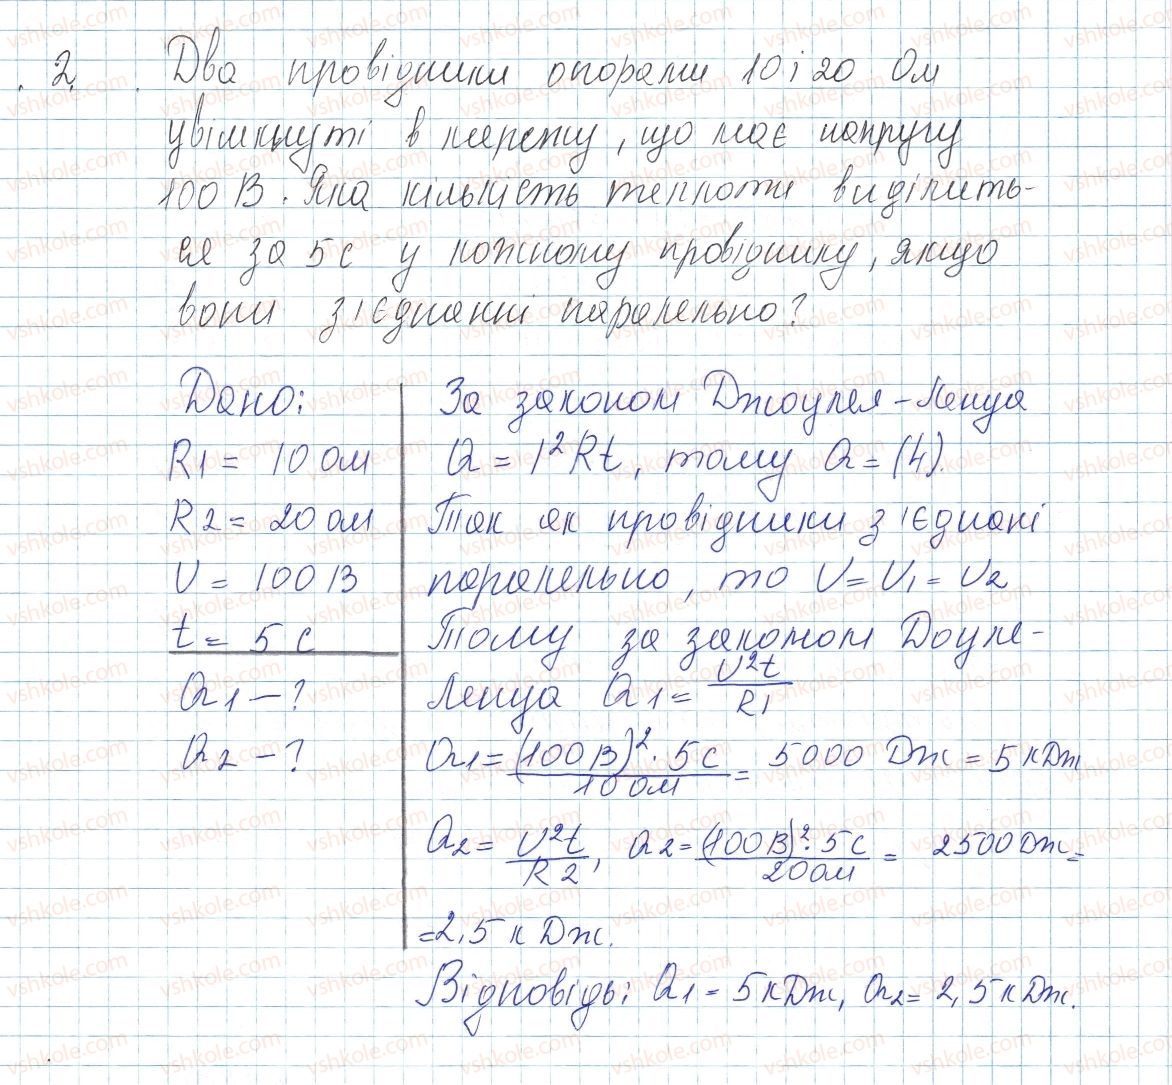 2. Два провідники опорами 10 і 20 Ом
увімкнуті в мережу, що має напругу
100 В. Яка кількість теплоти виділить-
ся за 5 с у кожному провіднику, якщо
вони з'єднанні паралельно?
Дано:
R1 = 10 ом
R2 = 20 ом
U = 100 В
t = 5 с
Q1 - ?
Q2 - ?
За законом Джоуля-Ленца
Q = I²Rt, тому Q = (4).
Так як провідники з'єднані
паралельно, то U = U1 = U2
Тому за законом Доуля-
Ленца Q1 = U²t / R1
Q1 = (100 В)² · 5 с / 10 ом = 5000 Дж = 5 кДж
Q2 = U²t / R2, Q2 = (100 В)² · 5 с / 20 ом = 2500 Дж =
= 2,5 кДж.
Відповідь: Q1 = 5 кДж, Q2 = 2,5 кДж.